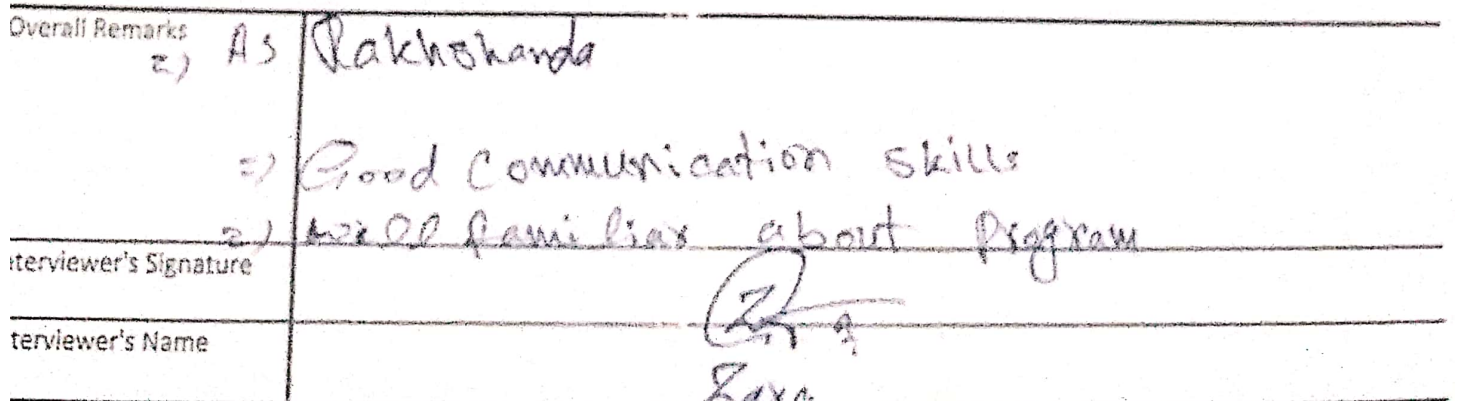 Overall Remarks
=) As Rakhshanda
=) Good Communication skills
=) well familiar about Program
terviewer's Signature
terviewer's Name
Zara